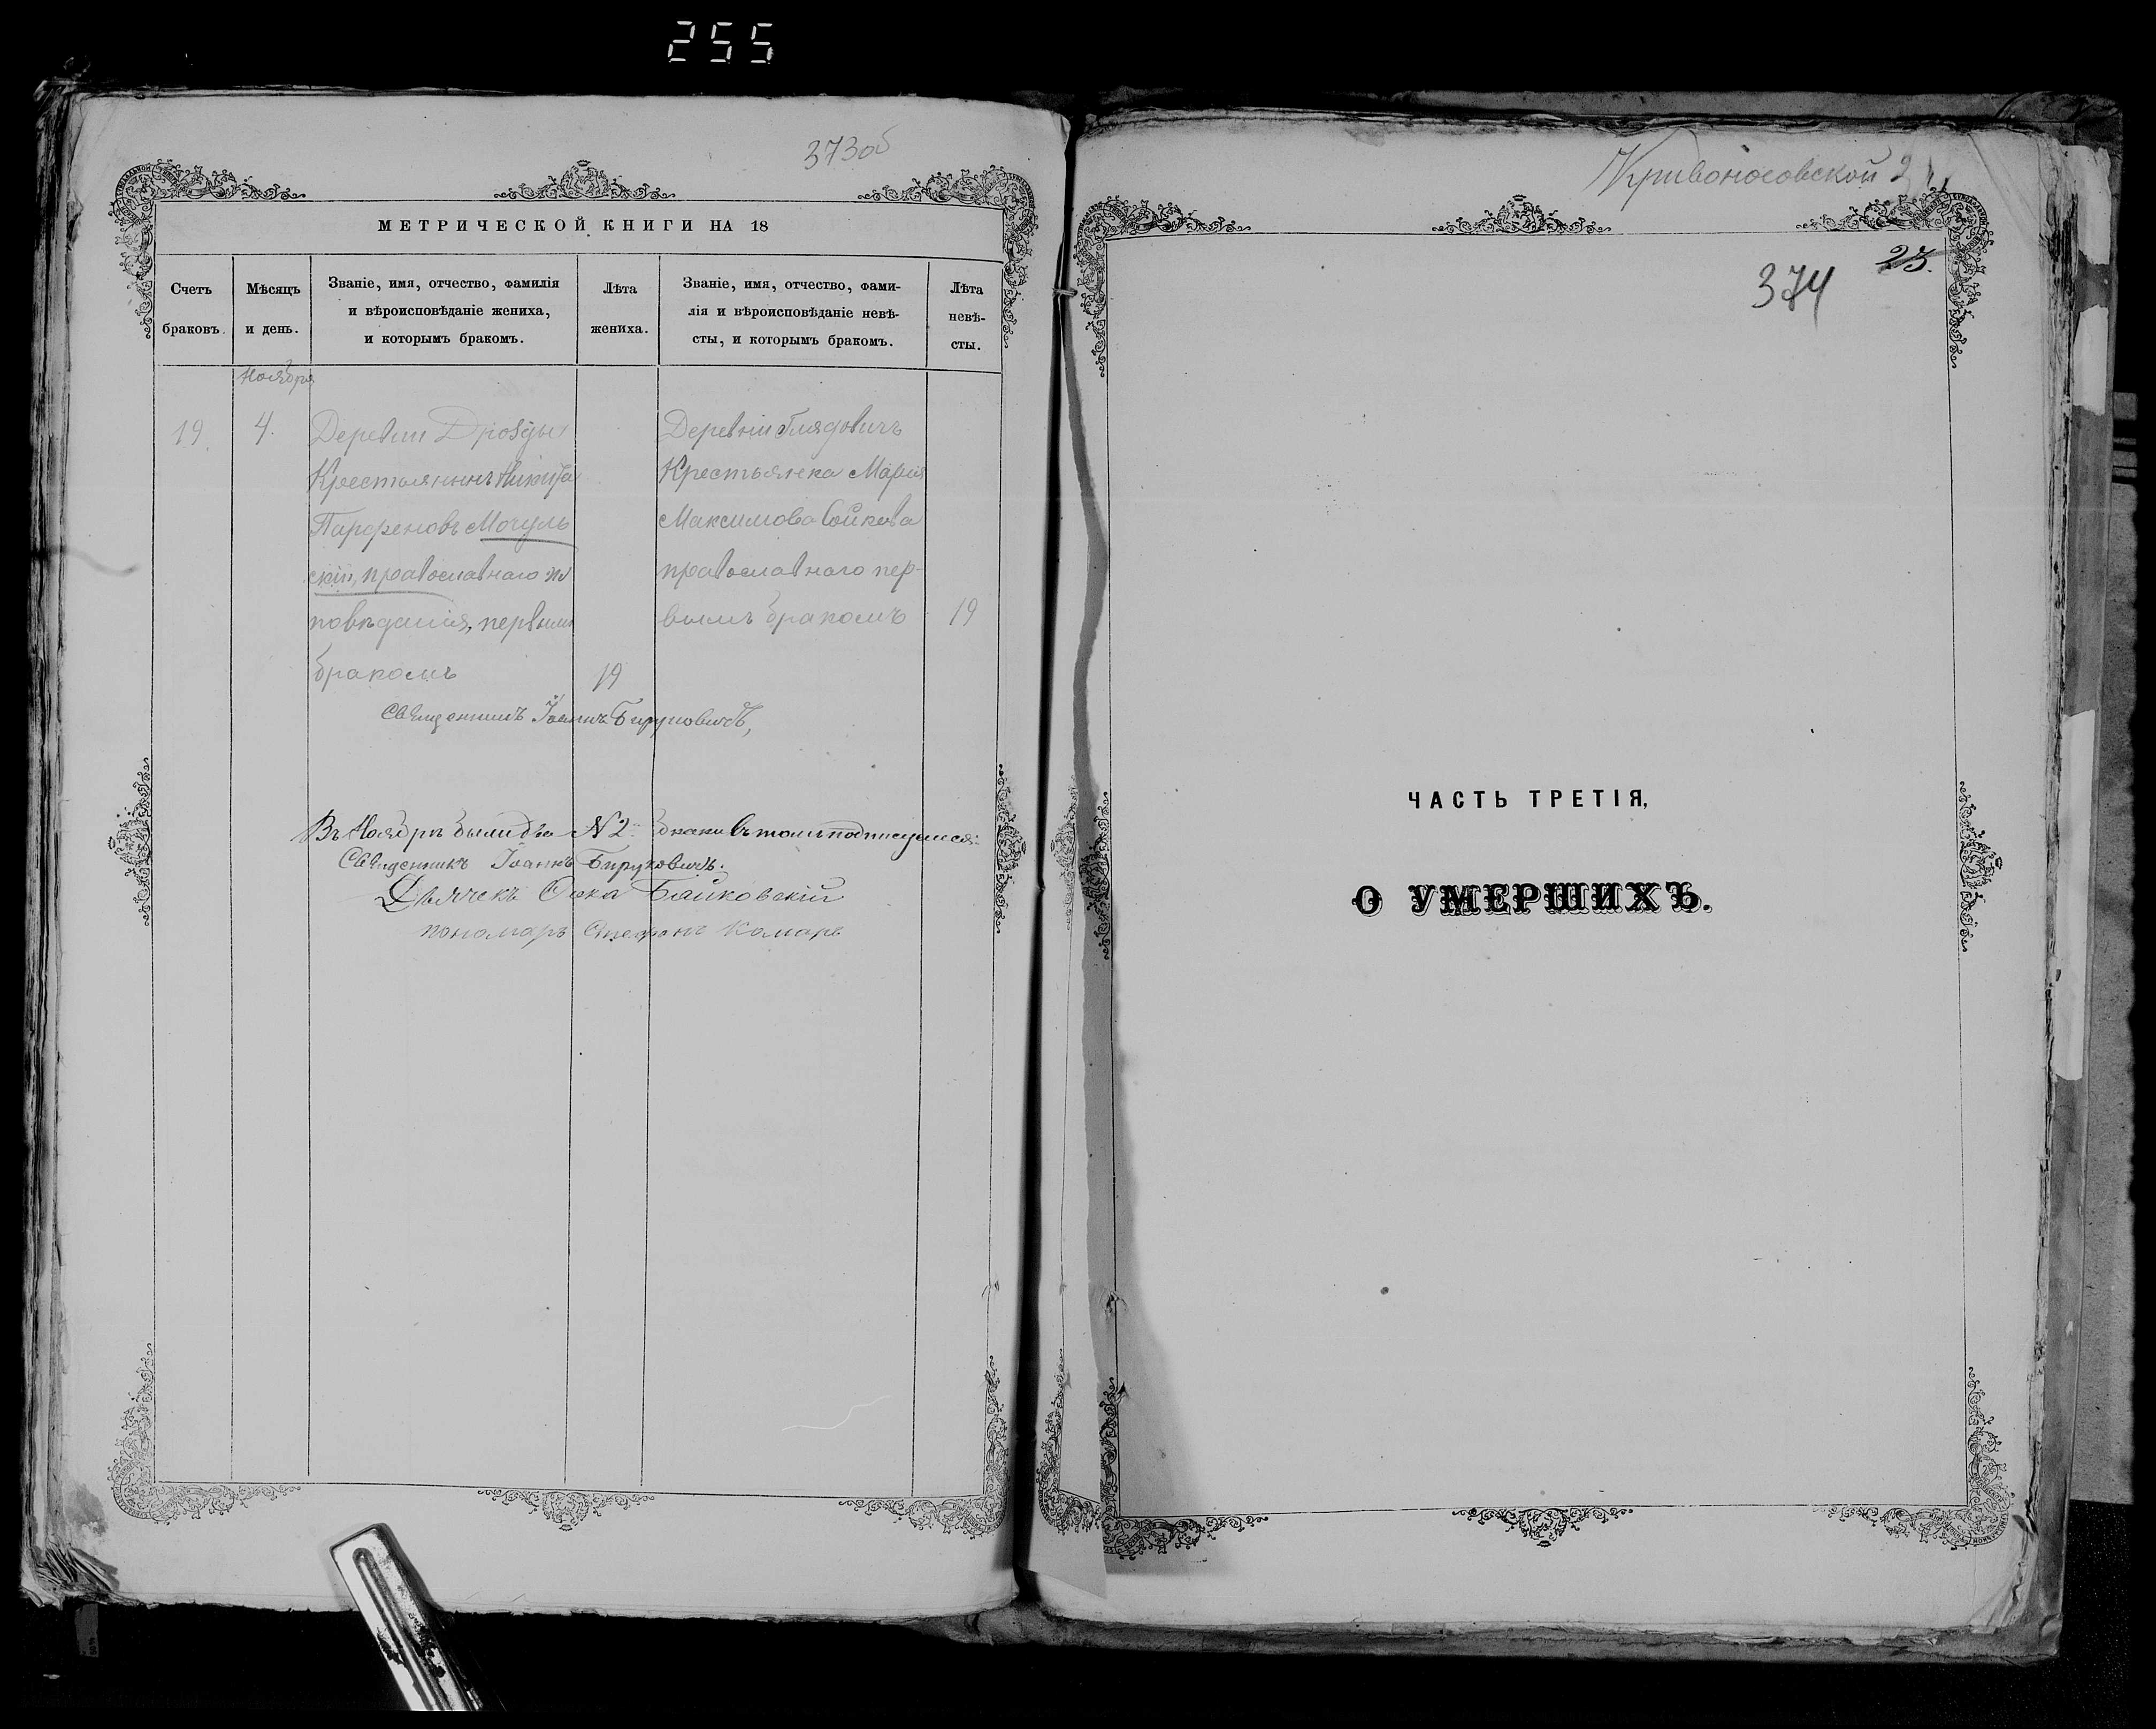 255
373об
МЕТРИЧЕСКОЙ КНИГИ НА 18
Счетъ браковъ.
Мѣсяцъ и день.
Званіе, имя, отчество, фамилія
и вѣроисповѣданіе жениха,
и которымъ бракомъ.
Лѣта жениха.
Званіе, имя, отчество, фами-
лія и вѣроисповѣданіе невѣ-
сты, и которымъ бракомъ.
Лѣта невѣ-
сты.
Ноября
19. 4.
Деревни Дрозды
Крестьянинъ Никита
Парфеновъ Могуль
скій, православнаго ис
повѣданія, первымъ
бракомъ
19
Деревни
Крестьянка Марія
Максимова Сойкова
православнаго пер-
вымъ бракомъ
19
Священникъ Іоаннъ Бируковичъ,
Въ Ноябрѣ были два № 2 браки въ томъ подписуемся:
Священникъ Іоаннъ Бируковичъ.
Дьячекъ Ѳока Байковскій
пономарь Стефанъ Комаръ
Кривоносовской
25.
374
ЧАСТЬ ТРЕТІЯ,
О УМЕРШИХЪ.